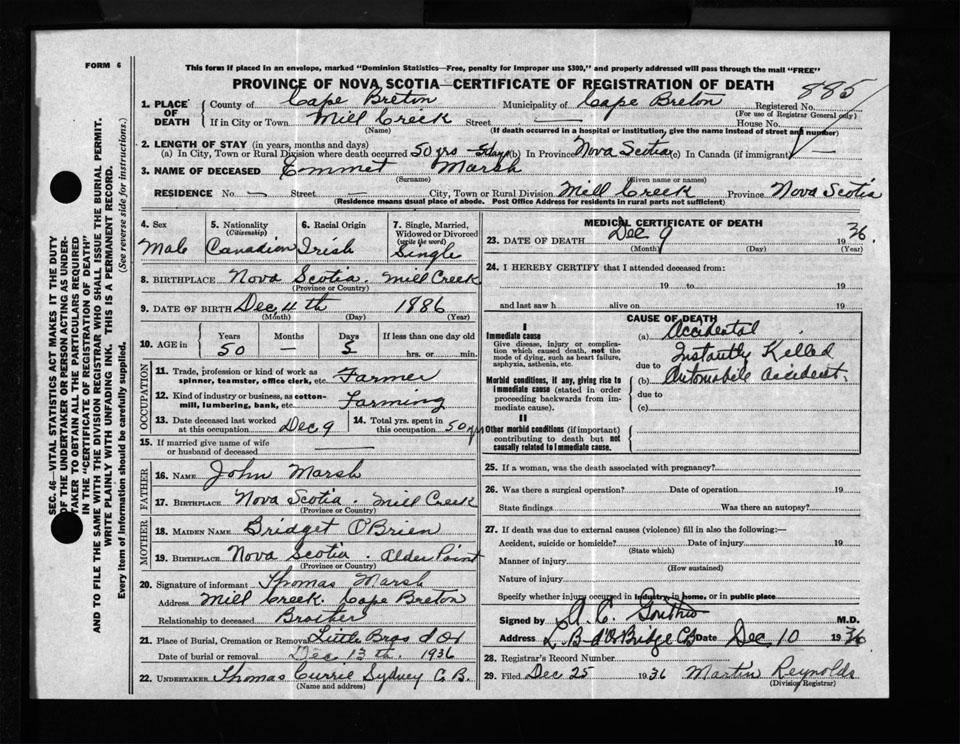 FORM 6
This form if placed in an envelope, marked "Dominion Statistics—Free, penalty for improper use $300," and properly addressed will pass through the mail "FREE"
PROVINCE OF NOVA SCOTIA—CERTIFICATE OF REGISTRATION OF DEATH
885
1. PLACE OF DEATH
County of Cape Breton Municipality of Cape Breton Registered No.
(For use of Registrar General only)
If in City or Town Mill Creek Street — House No.
(Name) (If death occurred in a hospital or institution, give the name instead of street and number)
2. LENGTH OF STAY (in years, months and days)
(a) In City, Town or Rural Division where death occurred 50 yrs - 5 days (b) In Province Nova Scotia (c) In Canada (if immigrant) —
3. NAME OF DECEASED Emmet Marsh
(Surname) (Given name or names)
RESIDENCE No. — Street — City, Town or Rural Division Mill Creek Province Nova Scotia
(Residence means usual place of abode. Post Office Address for residents in rural parts not sufficient)
4. Sex Male
5. Nationality (Citizenship) Canadian
6. Racial Origin Irish
7. Single, Married, Widowed or Divorced (write the word) Single
8. BIRTHPLACE Nova Scotia. Mill Creek
(Province or Country)
9. DATE OF BIRTH Dec 4th 1886
(Month) (Day) (Year)
10. AGE in Years 50 Months — Days 5 If less than one day old hrs. or min.
OCCUPATION
11. Trade, profession or kind of work as spinner, teamster, office clerk, etc. Farmer
12. Kind of industry or business, as cotton-mill, lumbering, bank, etc. Farming
13. Date deceased last worked at this occupation Dec 9
14. Total yrs. spent in this occupation 50 yrs
15. If married give name of wife or husband of deceased —
FATHER
16. NAME John Marsh
17. BIRTHPLACE Nova Scotia. Mill Creek
(Province or Country)
MOTHER
18. MAIDEN NAME Bridget O'Brien
19. BIRTHPLACE Nova Scotia. Alder Point
(Province or Country)
20. Signature of informant Thomas Marsh
Address Mill Creek. Cape Breton
Relationship to deceased Brother
21. Place of Burial, Cremation or Removal Little Bras d'Or
Date of burial or removal Dec 13th. 1936
22. UNDERTAKER Thomas Currie Sydney C.B.
(Name and address)
MEDICAL CERTIFICATE OF DEATH
23. DATE OF DEATH Dec 9 1936.
(Month) (Day) (Year)
24. I HEREBY CERTIFY that I attended deceased from:
19 to 19
and last saw h alive on 19
CAUSE OF DEATH
I
Immediate cause
Give disease, injury or complication which caused death, not the mode of dying, such as heart failure, asphyxia, asthenia, etc.
(a) Accidental
Instantly Killed
due to
Morbid conditions, if any, giving rise to immediate cause (stated in order proceeding backwards from immediate cause).
(b) Automobile Accident.
due to
(c)
II
Other morbid conditions (if important) contributing to death but not causally related to immediate cause.
25. If a woman, was the death associated with pregnancy?
26. Was there a surgical operation? Date of operation 19
State findings Was there an autopsy?
27. If death was due to external causes (violence) fill in also the following:—
Accident, suicide or homicide? Date of injury 19
(State which)
Manner of injury
(How sustained)
Nature of injury
Specify whether injury occurred in industry, in home, or in public place
Signed by A. C. M.D.
Address L. B d'Or Bridge CB Date Dec 10 1936
28. Registrar's Record Number
29. Filed Dec 25 1936 Martin Reynolds
(Division Registrar)
SEC. 46—VITAL STATISTICS ACT MAKES IT THE DUTY
OF THE UNDERTAKER OR PERSON ACTING AS UNDER-
TAKER TO OBTAIN ALL THE PARTICULARS REQUIRED
IN THE "CERTIFICATE OF REGISTRATION OF DEATH"
AND TO FILE THE SAME WITH THE DIVISION REGISTRAR WHO SHALL ISSUE THE BURIAL PERMIT.
WRITE PLAINLY WITH UNFADING INK. THIS IS A PERMANENT RECORD.
Every item of information should be carefully supplied. (See reverse side for instructions.)